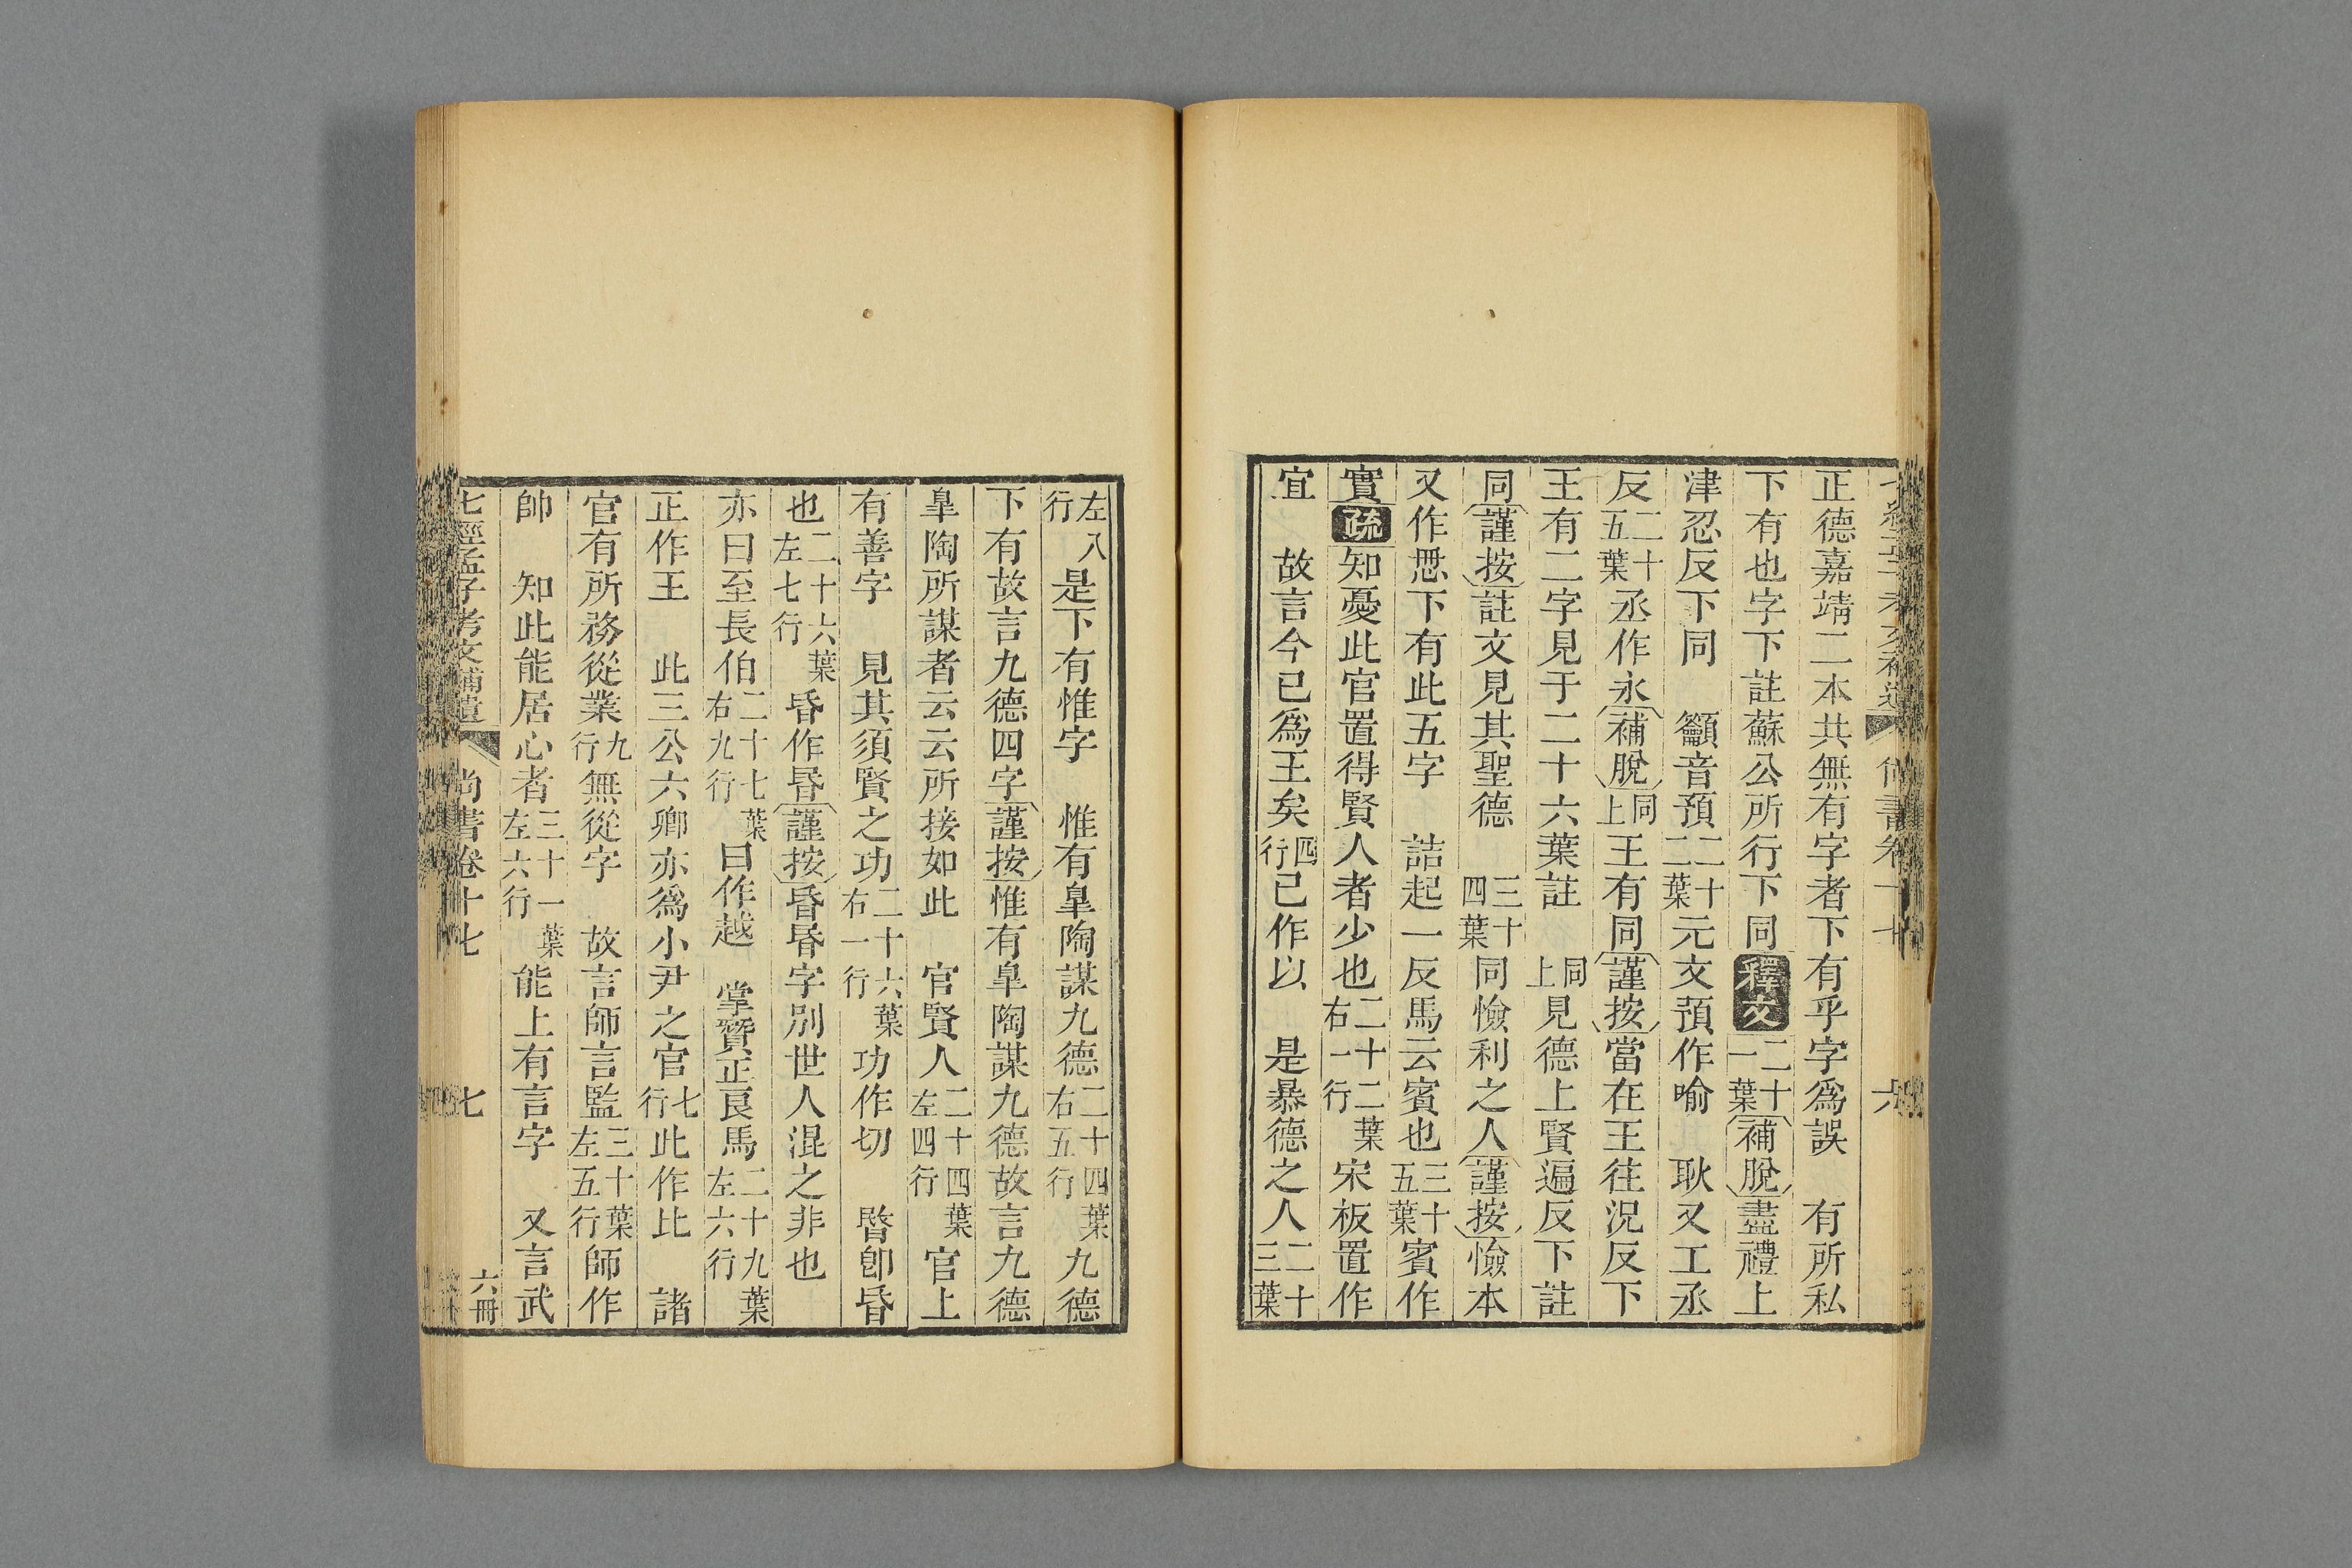 正德嘉靖二本共無有字者下有乎字爲誤　有所私
下有也字下註蘇公所行下同釋文二十一葉補脫盡禮上
津忍反下同　籲音預二十二葉元文預作喻　耿又工丞
反二十五葉丞作永補脫同上王有同謹按當在王往況反下
王有二字見于二十六葉註　同上見德上賢遍反下註
同謹按註文見其聖德　三十四葉同憸利之人謹按憸本
又作㥦下有此五字　詰起一反馬云賓也三十五葉賓作
實疏知憂此官置得賢人者少也二十二葉右一行宋板置作
宜　故言今已爲王矣四行已作以　是暴德之人二十三葉
左八行是下有惟字　惟有皐陶謀九德二十四葉右五行九德
下有故言九德四字謹按惟有皐陶謀九德故言九德
皐陶所謀者云云所接如此　官賢人二十四葉左四行官上
有善字　見其須賢之功二十六葉右一行功作切　昬卽昏
也二十六葉左七行昏作昬謹按昏昬字別世人混之非也
亦曰至長伯二十七葉右九行曰作越　掌贊正良馬二十九葉左六行
正作王　此三公六卿亦爲小尹之官七行此作比　諸
官有所務從業九行無從字　故言師言監三十葉左五行師作
帥　知此能居心者三十一葉左六行能上有言字　又言武
七經孟子考文補遺　尚書卷十七　七　六冊